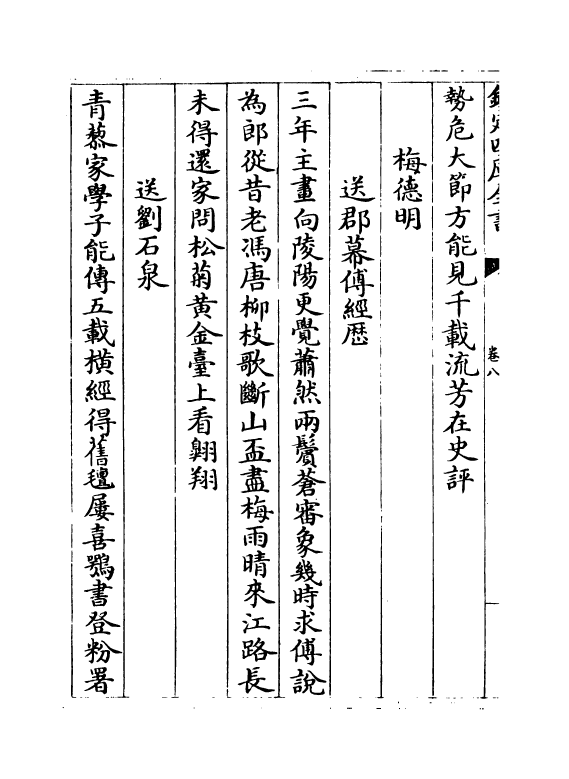 欽定四庫全書
卷八
勢危大節方能見千載流芳在史評
梅德明
送郡幕傅經歴
三年主畫向陵陽更覺蕭然兩鬢蒼審象幾時求傅說
為郎從昔老馮唐柳枝歌斷山盃盡梅雨晴來江路長
未得還家問松菊黄金臺上看翺翔
送劉石泉
青藜家學子能傳五載横經得舊氊屢喜鶚書登粉署